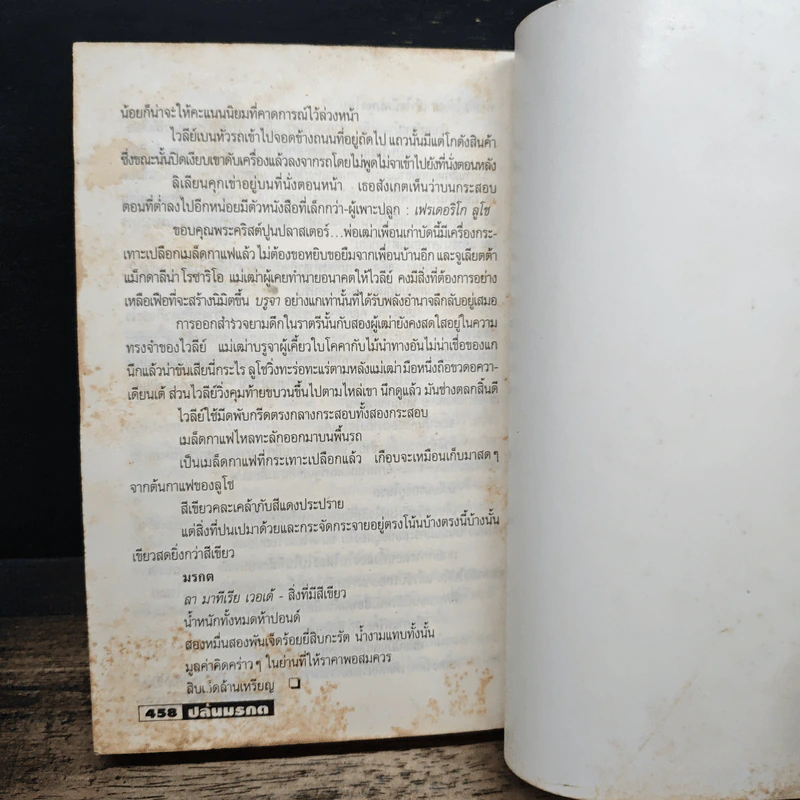 น้อยก็น่าจะให้คะแนนนิยมที่คาดการณ์ไว้ล่วงหน้า
ไวลีย์เบนหัวรถเข้าไปจอดข้างถนนที่อยู่ถัดไป แถวนั้นมีแต่โกดังสินค้า
ซึ่งขณะนั้นปิดเงียบเขาดับเครื่องแล้วลงจากรถโดยไม่พูดไม่จาเข้าไปยังที่นั่งตอนหลัง
ลิเลียนคุกเข่าอยู่บนที่นั่งตอนหน้า เธอสังเกตเห็นว่าบนกระสอบ
ตอนที่ต่ำลงไปอีกหน่อยมีตัวหนังสือที่เล็กกว่า-ผู้เพาะปลูก : เฟรเดอริโก ลูโซ่
ขอบคุณพระคริสต์ปูนปลาสเตอร์...พ่อเฒ่าเพื่อนเก่าบัดนี้มีเครื่องกระ-
เทาะเปลือกเมล็ดกาแฟแล้ว ไม่ต้องขอหยิบขอยืมจากเพื่อนบ้านอีก และจูเลียตต้า
แม็กดาลีน่า โรซาริโอ แม่เฒ่าผู้เคยทำนายอนาคตให้ไวลีย์ คงมีสิ่งที่ต้องการอย่าง
เหลือเฟือที่จะสร้างนิมิตขึ้น บรูจา อย่างแกเท่านั้นที่ได้รับพลังอำนาจลึกลับอยู่เสมอ
การออกสำรวจยามดึกในราตรีนั้นกับสองผู้เฒ่ายังคงสดใสอยู่ในความ
ทรงจำของไวลีย์ แม่เฒ่าบรูจาผู้เคี้ยวใบโคคากับไม้นำทางอันไม่น่าเชื่อของแก
นึกแล้วน่าขันเสียนี่กระไร ลูโซ่วิ่งทะร่อทะแร่ตามหลังแม่เฒ่ามือหนึ่งถือขวดอควา-
เดียนเต้ ส่วนไวลีย์วิ่งคุมท้ายขบวนขึ้นไปตามไหล่เขา นึกดูแล้ว มันช่างตลกสิ้นดี
ไวลีย์ใช้มีดพับกรีดตรงกลางกระสอบทั้งสองกระสอบ
เมล็ดกาแฟไหลทะลักออกมาบนพื้นรถ
เป็นเมล็ดกาแฟที่กระเทาะเปลือกแล้ว เกือบจะเหมือนเก็บมาสดๆ
จากต้นกาแฟของลูโซ่
สีเขียวคละเคล้ากับสีแดงประปราย
แต่สิ่งที่ปนเปมาด้วยและกระจัดกระจายอยู่ตรงโน้นบ้างตรงนี้บ้างนั้น
เขียวสดยิ่งกว่าสีเขียว
มรกต
ลา มาทีเรีย เวอเด้ - สิ่งที่มีสีเขียว
น้ำหนักทั้งหมดห้าปอนด์
สองหมื่นสองพันเจ็ดร้อยยี่สิบกะรัต น้ำงามแทบทั้งนั้น
มูลค่าคิดคร่าวๆ ในย่านที่ให้ราคาพอสมควร
สิบเจ็ดล้านเหรียญ ❑
458 ปล้นมรกต